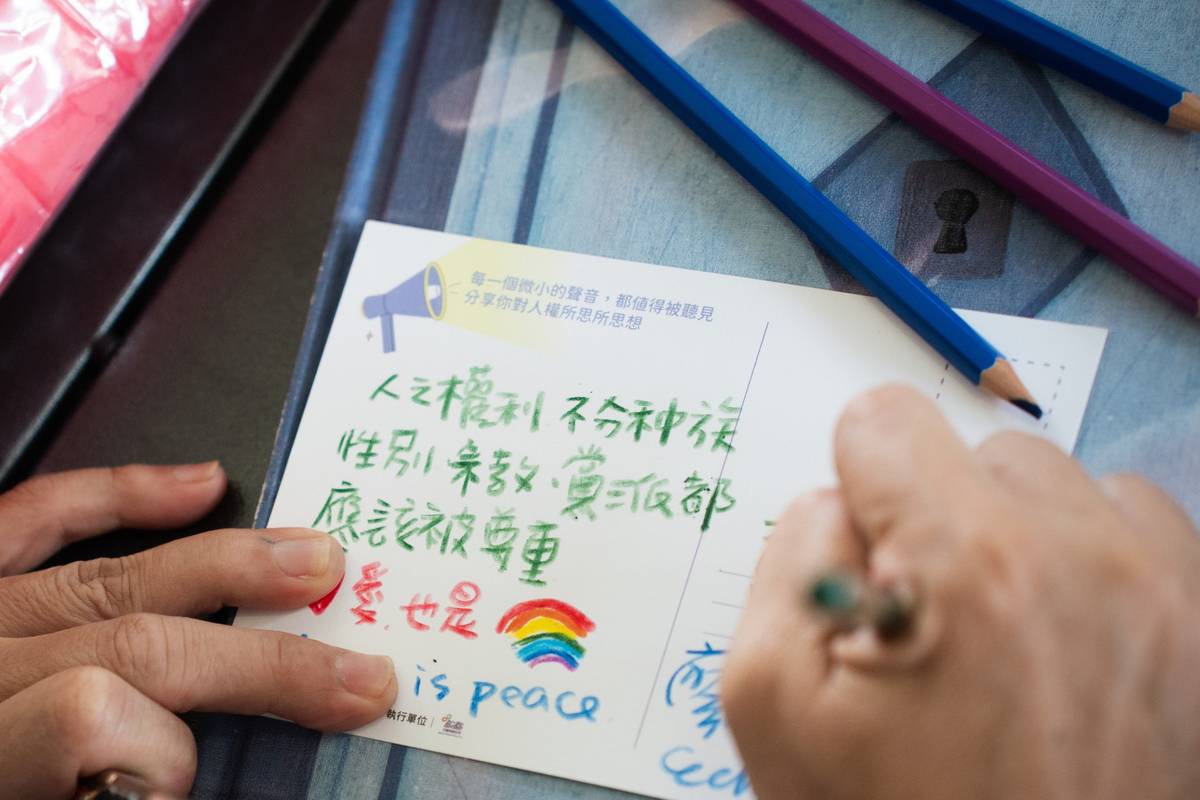 每一個微小的聲音，都值得被聽見
分享你對人權所思所思想
人之權利 不分种族
性別 宗教·黨派都
應該被尊重
愛.也是
is peace
執行單位